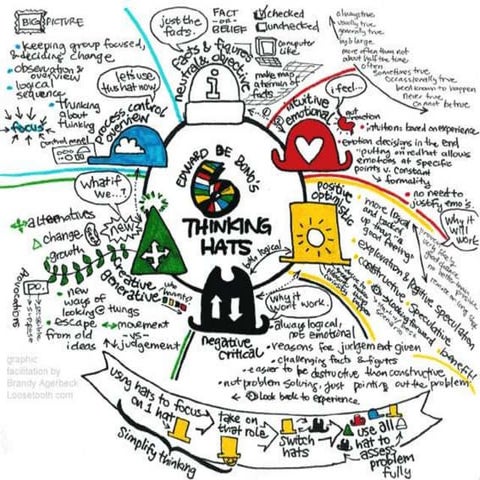 BIG PICTURE
• keeping group focused,
& deciding change
• observation &
overview
logical
sequence
• thinking
about
thinking
focus
control panel
process control
overview
let's use
this hat now
just the
facts.
facts & figures
neutral & objective
i
FACT
-OR-
BELIEF
checked
unchecked
computer
like
make map
always true
usually true
generally true
by & large
more often than not
about half the time
often
sometimes true
occasionally true
been known to happen
never true
cannot be true
intuitive
emotional
i feel...
• intuitions based on experience
• emotion decisions in the end
• putting on red hat allows
emotions at specific
points v. constant
formality
• no need to
justify emo's.
EDWARD DE BONO'S
6
THINKING
HATS
what if
we...?
new
alternatives
change
growth
creative
generative
PROVOCATIONS
po.
• new
ways of
looking @ things
• escape
from old
ideas
movement
-vs-
judgement
positive
optimistic
why it
will
work
• more logical
good feelings
• exploration & positive speculation
• constructive
• speculative
benefit
both logical
why it
won't work.
negative
critical
• always logical,
not emotional
• reasons for judgement given
• challenging facts & figures
• easier to be destructive than constructive
• not problem solving, just pointing out the problem
look back to experience.
using hats to focus
on 1 hat
take on
that role
switch
hats
use all
hat to
assess
problem
fully
simplify thinking
graphic
facilitation by
Brandy Agerbeck
Loosetooth.com